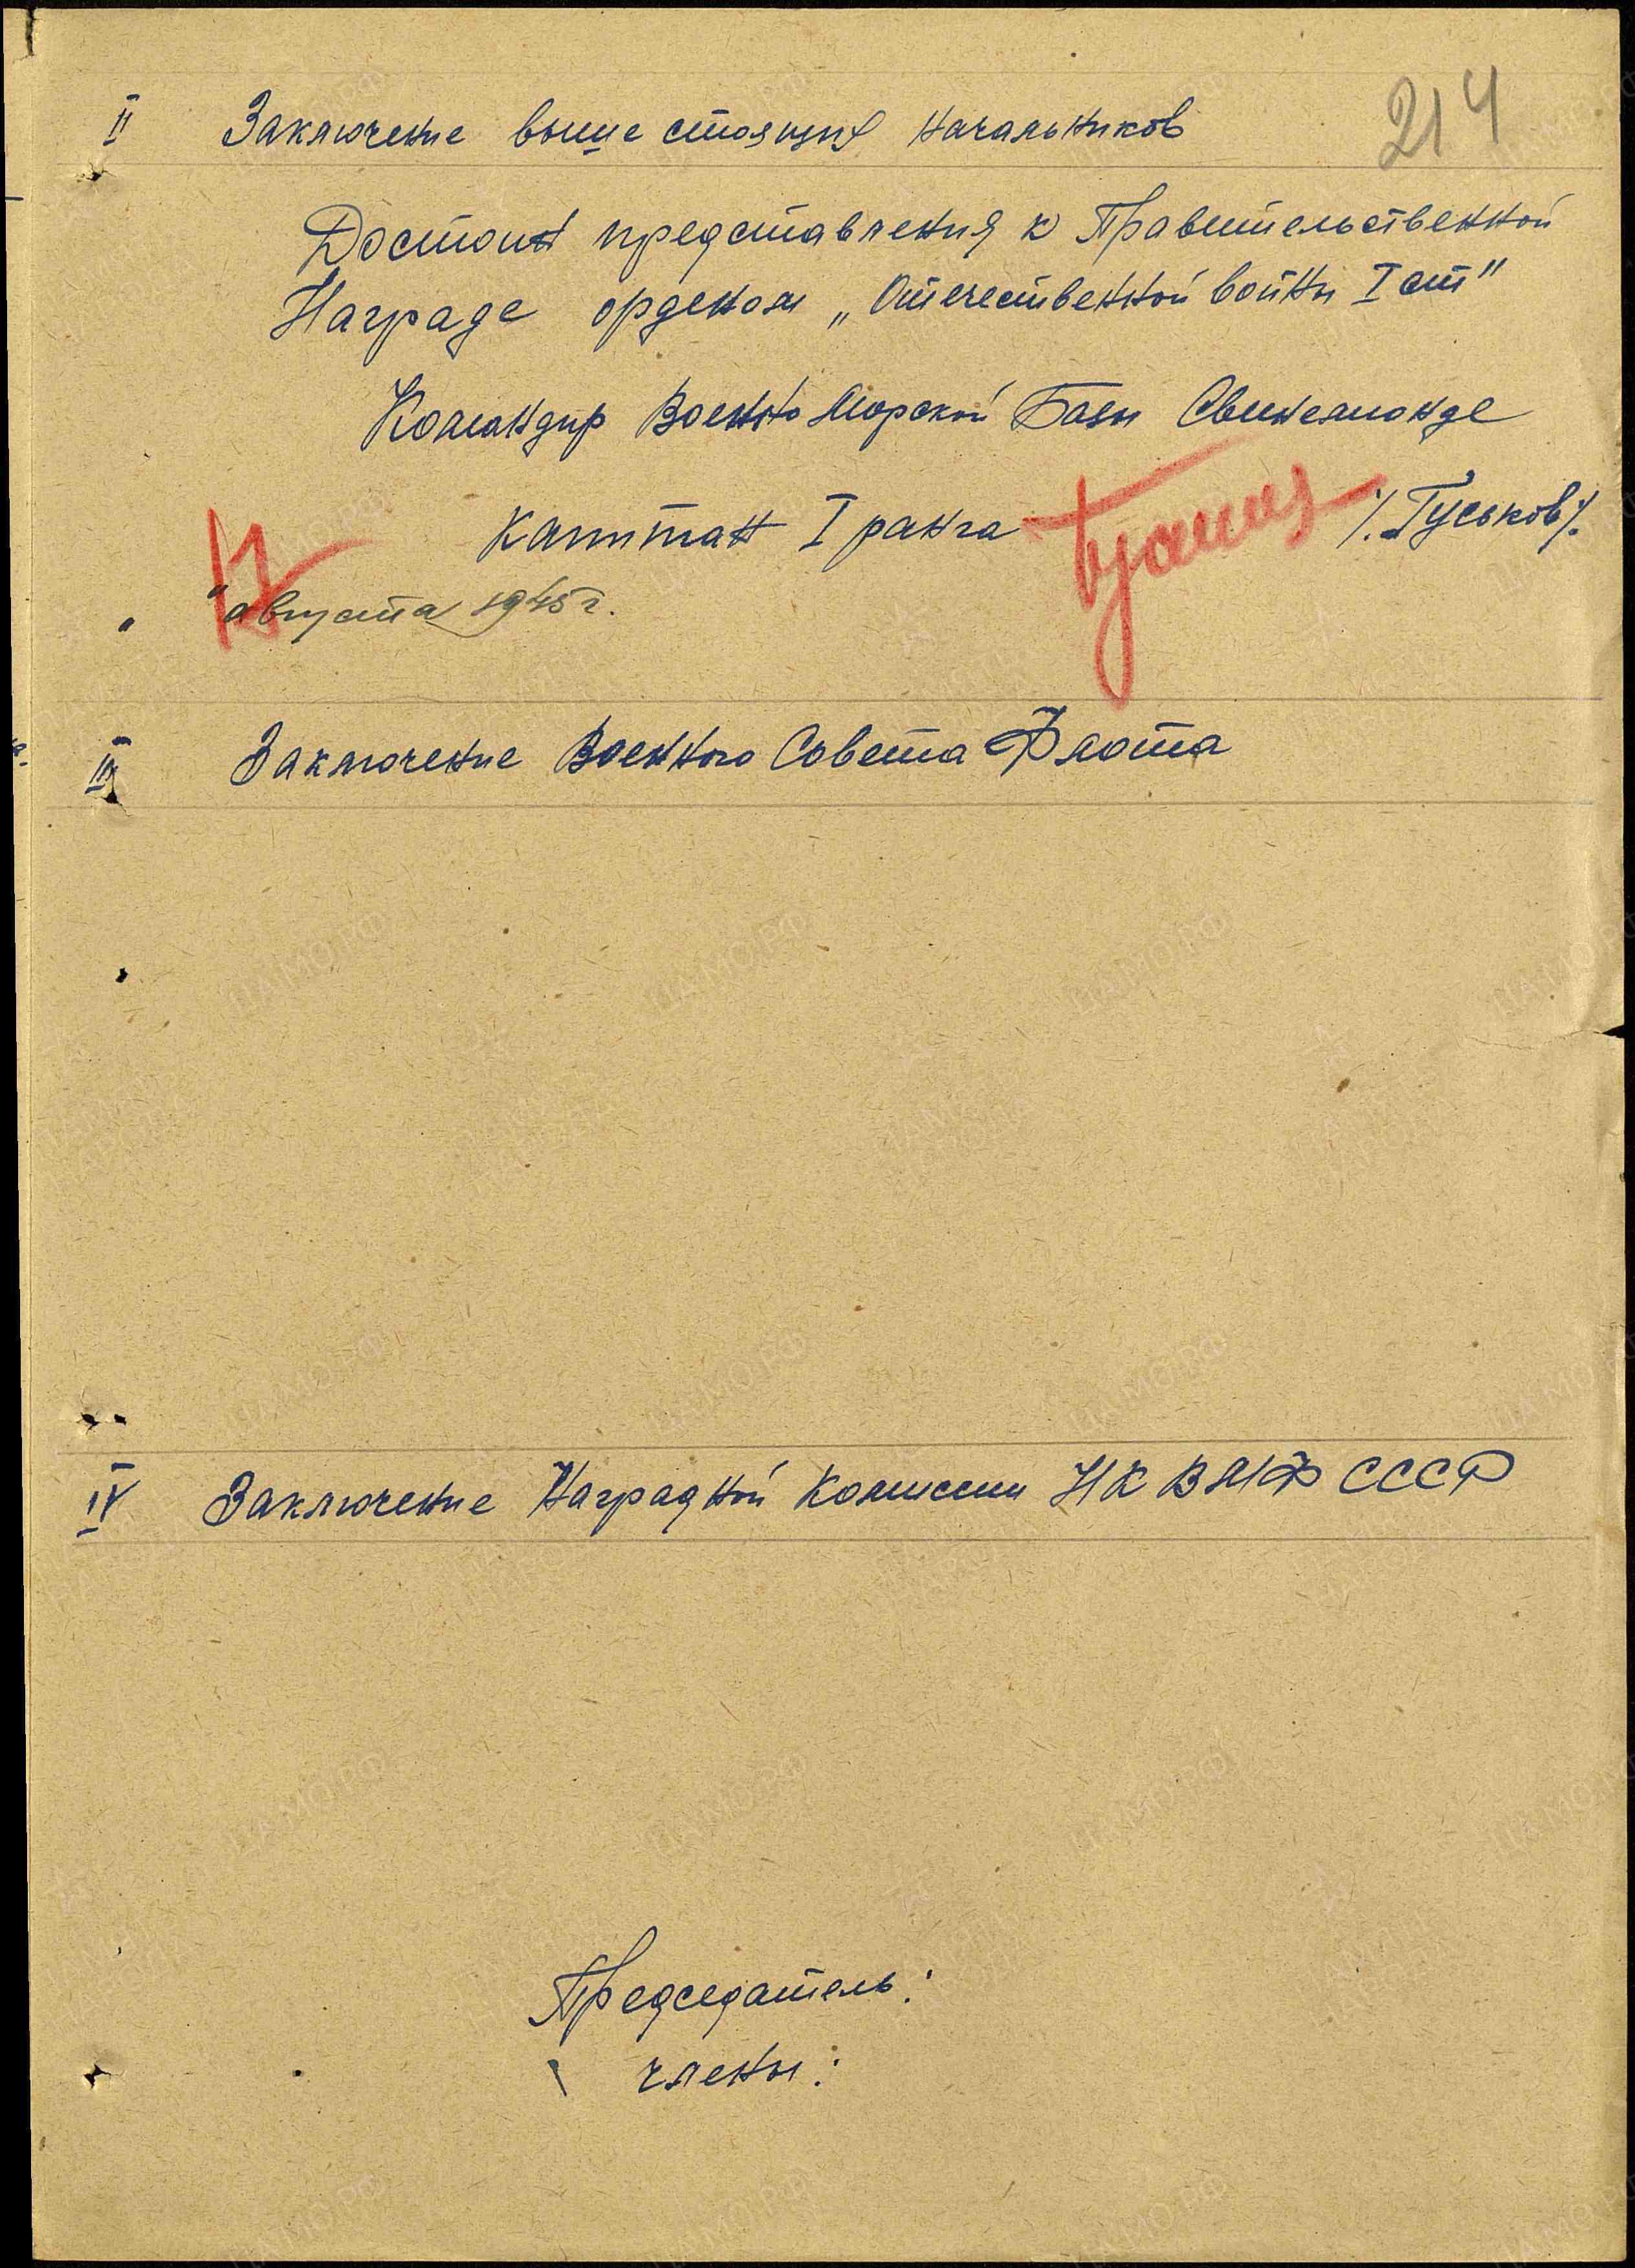 214
II Заключение выше стоящих начальников
Достоин представления к Правительственной
Награде орденом „Отечественной войны I ст"
Командир Военно Морской Базы Свинемюнде
Капитан I ранга /.Гуськов/.
17
" августа 1945 г.
III Заключение Военного Совета Флота
IV Заключение Наградной Комиссии НК ВМФ СССР
Председатель:
члены: